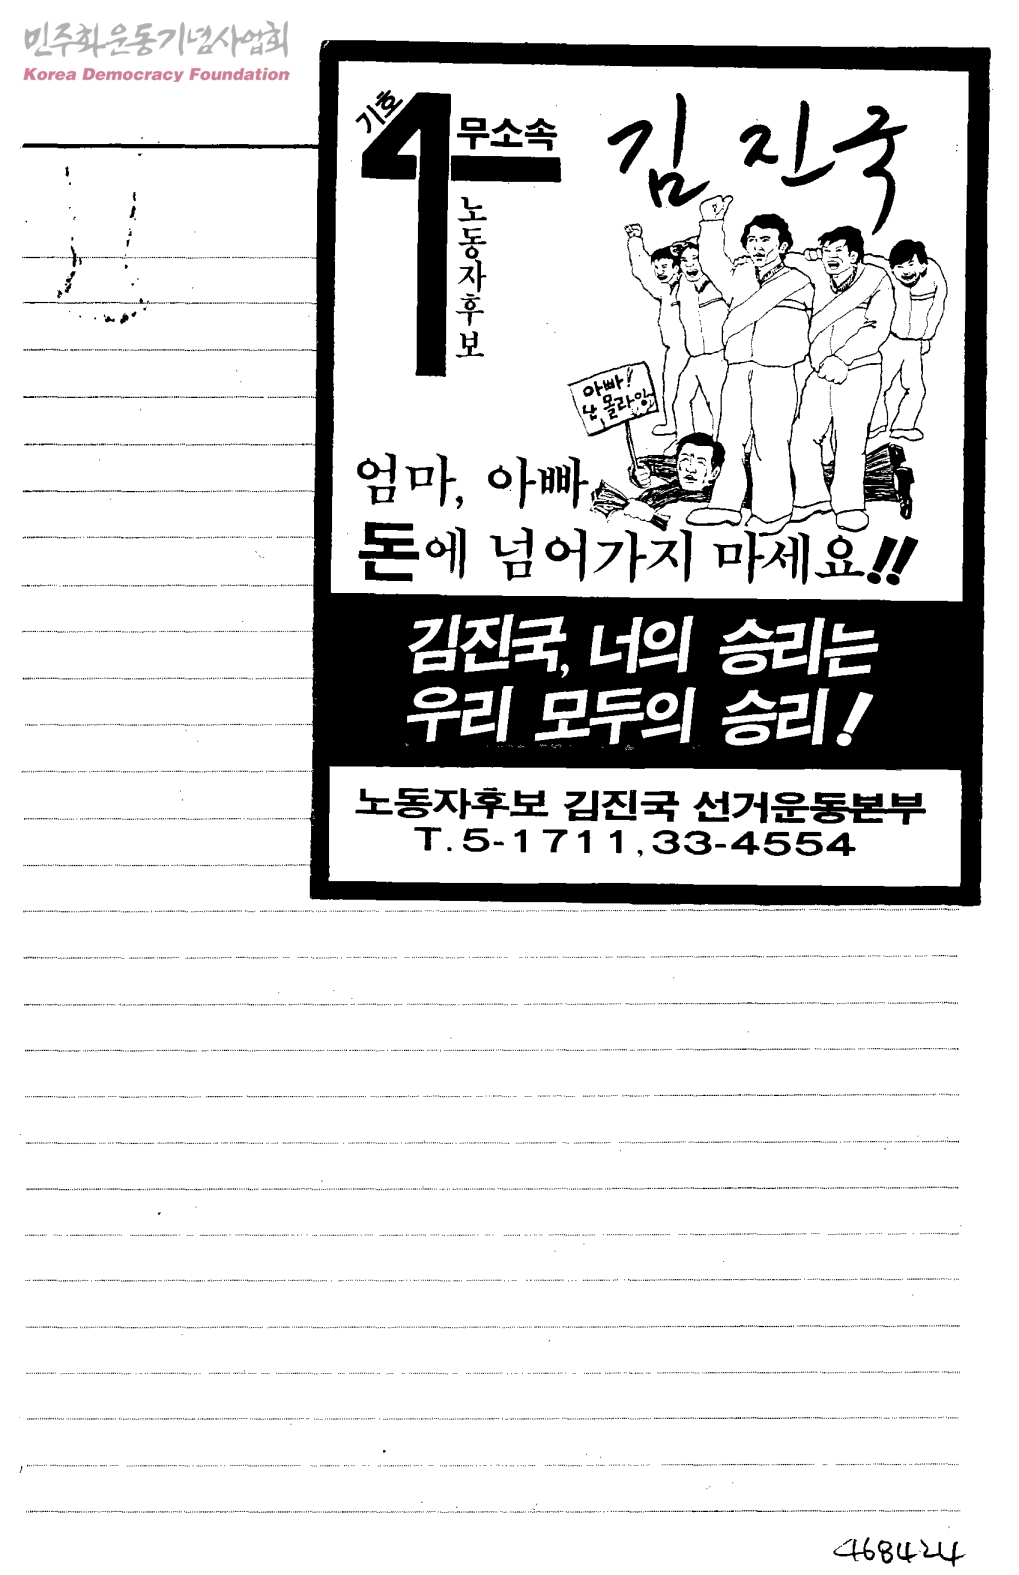 민주화운동기념사업회
Korea Democracy Foundation
기호
4
무소속
노동자후보
김진국
아빠!
난 몰라잉
엄마, 아빠
돈에 넘어가지 마세요!!
김진국, 너의 승리는
우리 모두의 승리!
노동자후보 김진국 선거운동본부
T.5-1711,33-4554
468424